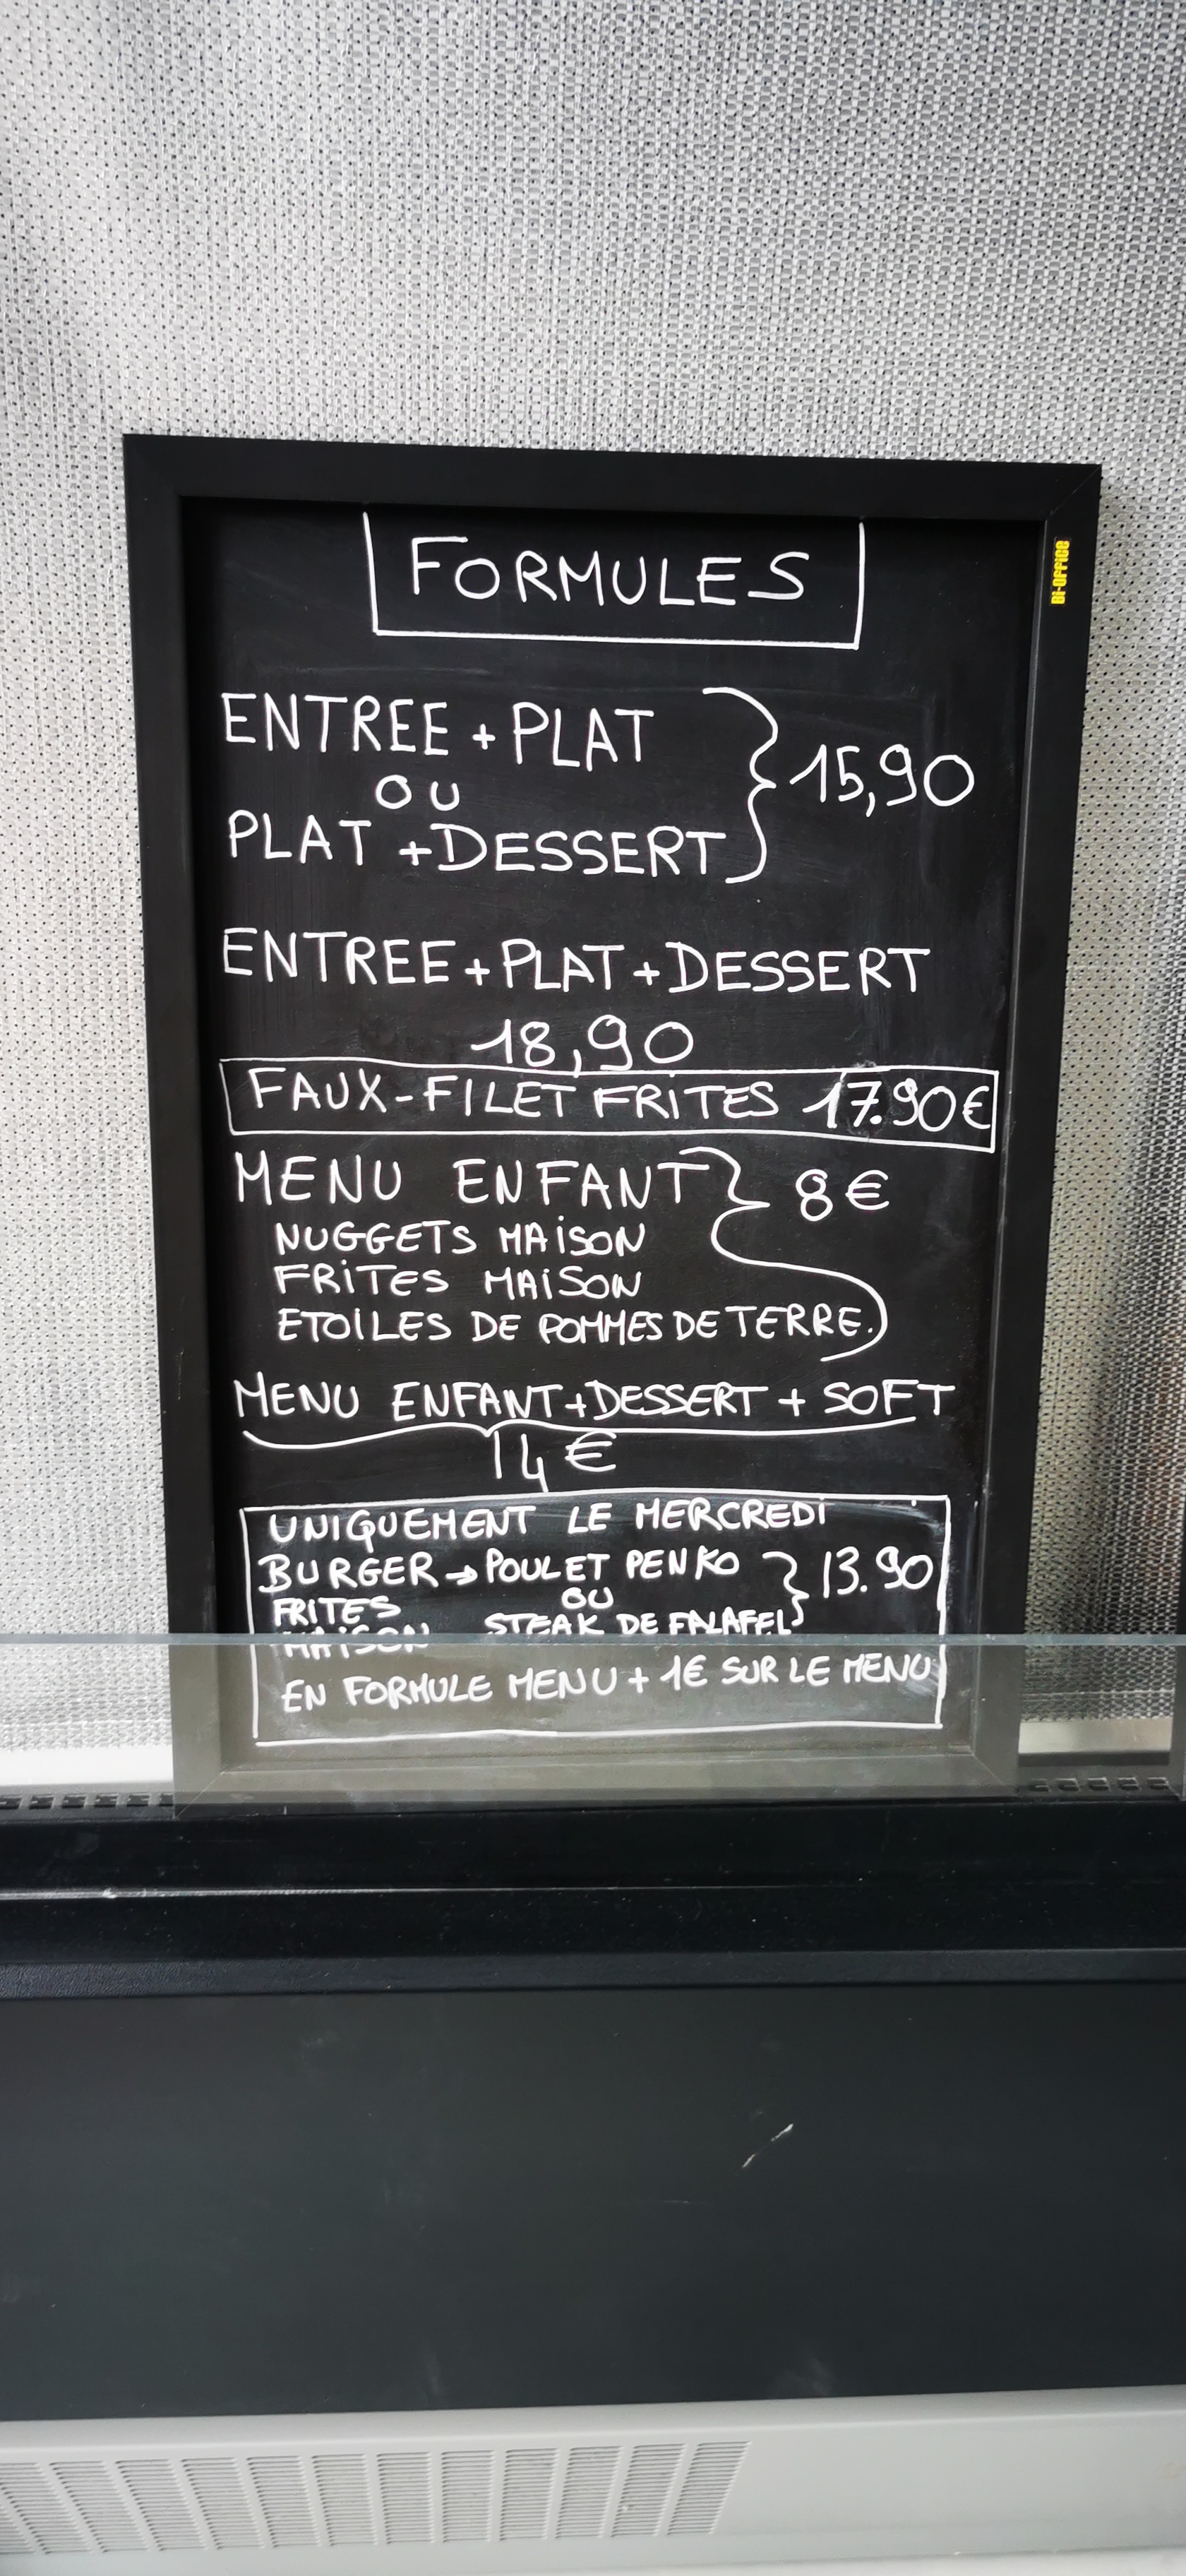 FORMULES
Bi-OFFiCE
ENTREE + PLAT
OU
PLAT + DESSERT
15,90
ENTREE + PLAT + DESSERT
18,90
FAUX-FILET FRITES 17.90€
MENU ENFANT 8€
NUGGETS MAiSON
FRiTES MAiSON
ETOiLES DE POMMES DE TERRE.
MENU ENFANT + DESSERT + SOFT
14€
UNIQUEMENT LE MERCREDi
BURGER → POULET PENKO 13.90
FRITES OU
MAiSON STEAK DE FALAFEL
EN FORMULE MENU + 1€ SUR LE MENU